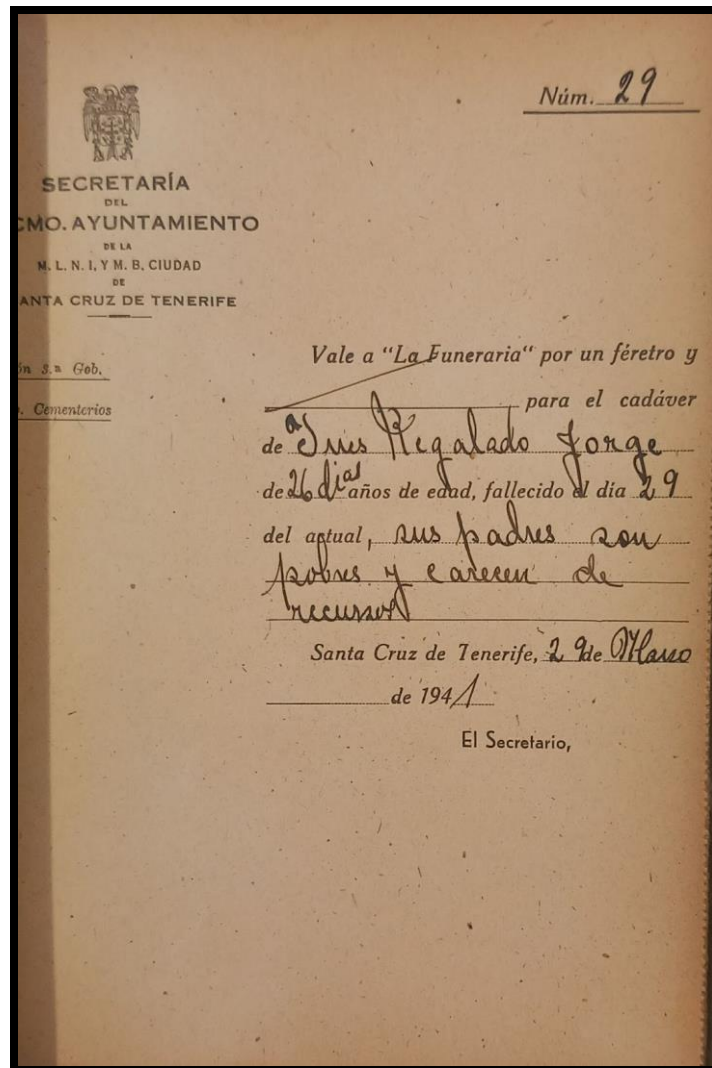 Núm. 29
SECRETARÍA
DEL
CMO. AYUNTAMIENTO
DE LA
M. L. N. I. Y M. B. CIUDAD
DE
ANTA CRUZ DE TENERIFE
ón 3.ª Gob.
. Cementerios
Vale a "La Funeraria" por un féretro y
para el cadáver
de Inés Regalado Jorge
de 26 dias años de edad, fallecido el día 29
del actual, sus padres son
pobres y carecen de
recursos
Santa Cruz de Tenerife, 29 de Marzo
de 1941
El Secretario,